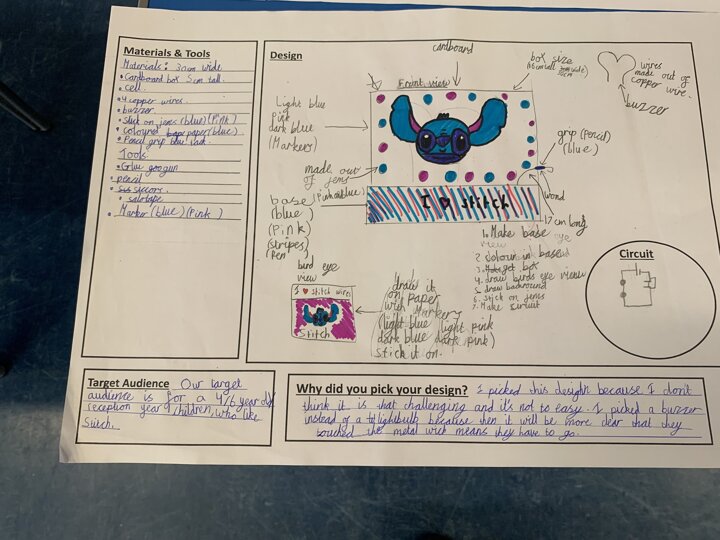 Materials & Tools
Materials: 30cm wide
• Cardboard box 5cm tall.
• cell
• 4 copper wires.
• buzzer
• Stick on jems (blue) (Pink)
• coloured paper (blue)
• Pencil grip blue
Tools:
• Glue
• pencil
• 
• salotape
• Marker (blue) (Pink)
Design
cardboard
Front view
box size
wires
made out of
copper wire.
buzzer
Light blue
Pink
dark blue
(Markers)
grip (pencil)
(blue)
made out
of jems
(Pink and blue)
base
(blue)
(Pink)
(stripes)
(Pen)
I ♥ Stitch
17cm long
1. Make base
2. Colour in base
3. box
4. draw birds eye view
5. draw background
6. Stick on jems
7. Make circuit
bird eye
view
I ♥ stitch wires
Stitch
draw it
on paper
with Markers
(light blue light pink
dark blue dark pink)
stick it on.
Circuit
Target Audience Our target
audience is for a 4/6 year old
reception year children, who like
Stitch.
Why did you pick your design? I picked this design because I don't
think it is that challenging and it's not to easy. I picked a buzzer
instead of a lightbulb because then it will be more clear that they
touched the metal wich means they have to go.